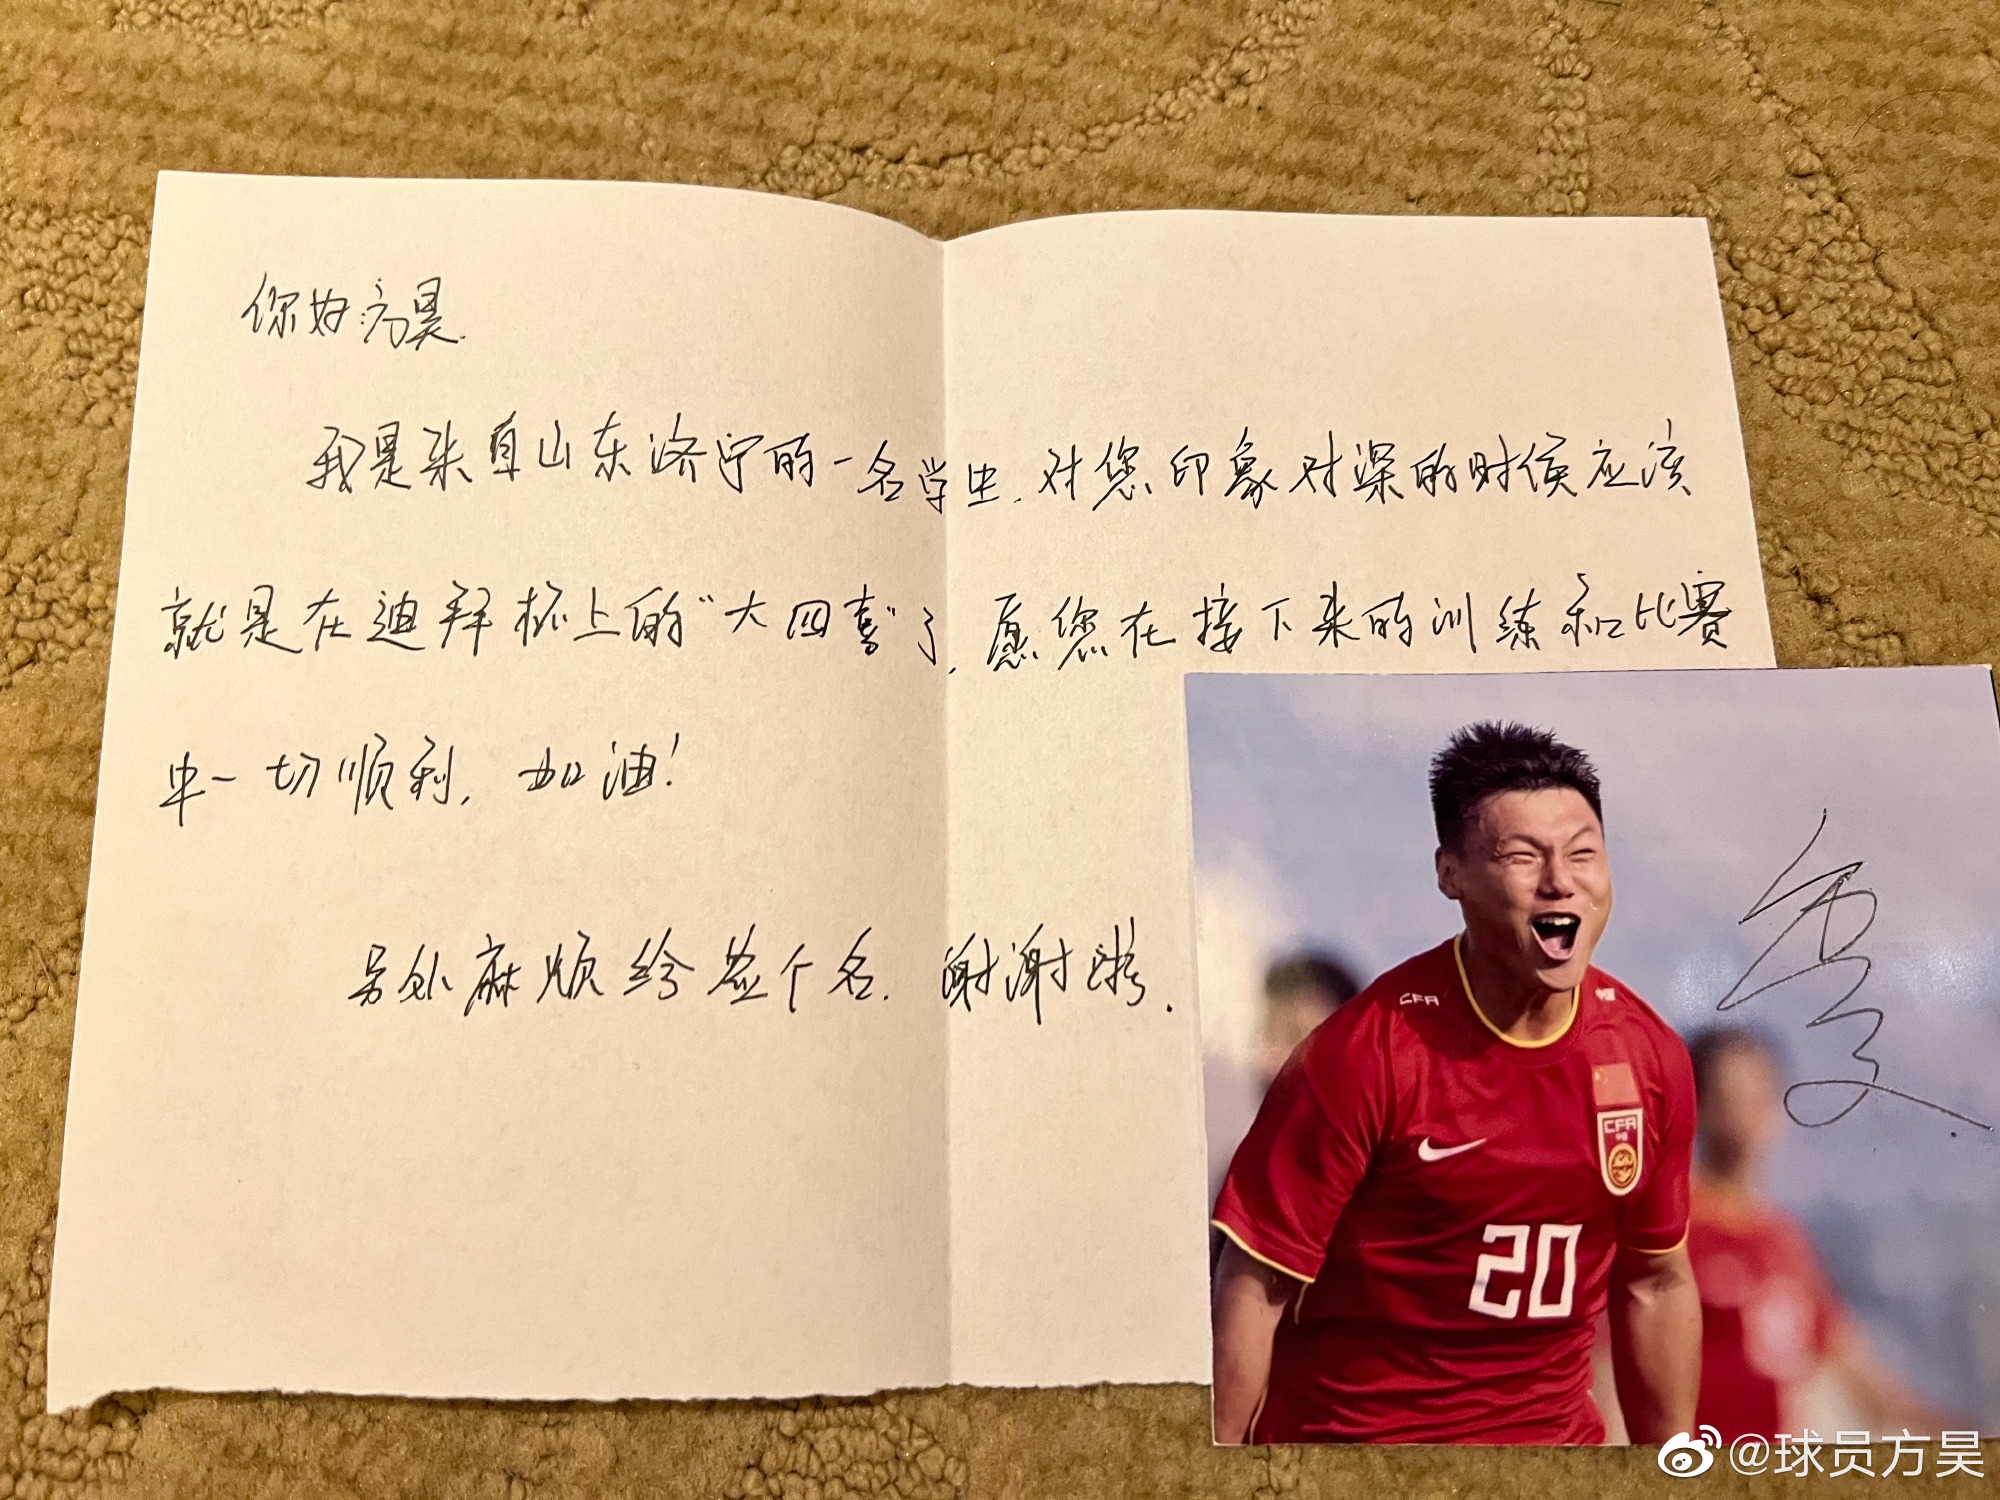 你好方昊.
我是来自山东济宁的一名学生.对您印象对深的时侯应该
就是在迪拜杯上的"大四喜"了,愿您在接下来的训练和比赛
中一切顺利,加油!
另外麻烦给签个名.谢谢啦.
CFA
中国
CFA
中国
20
@球员方昊